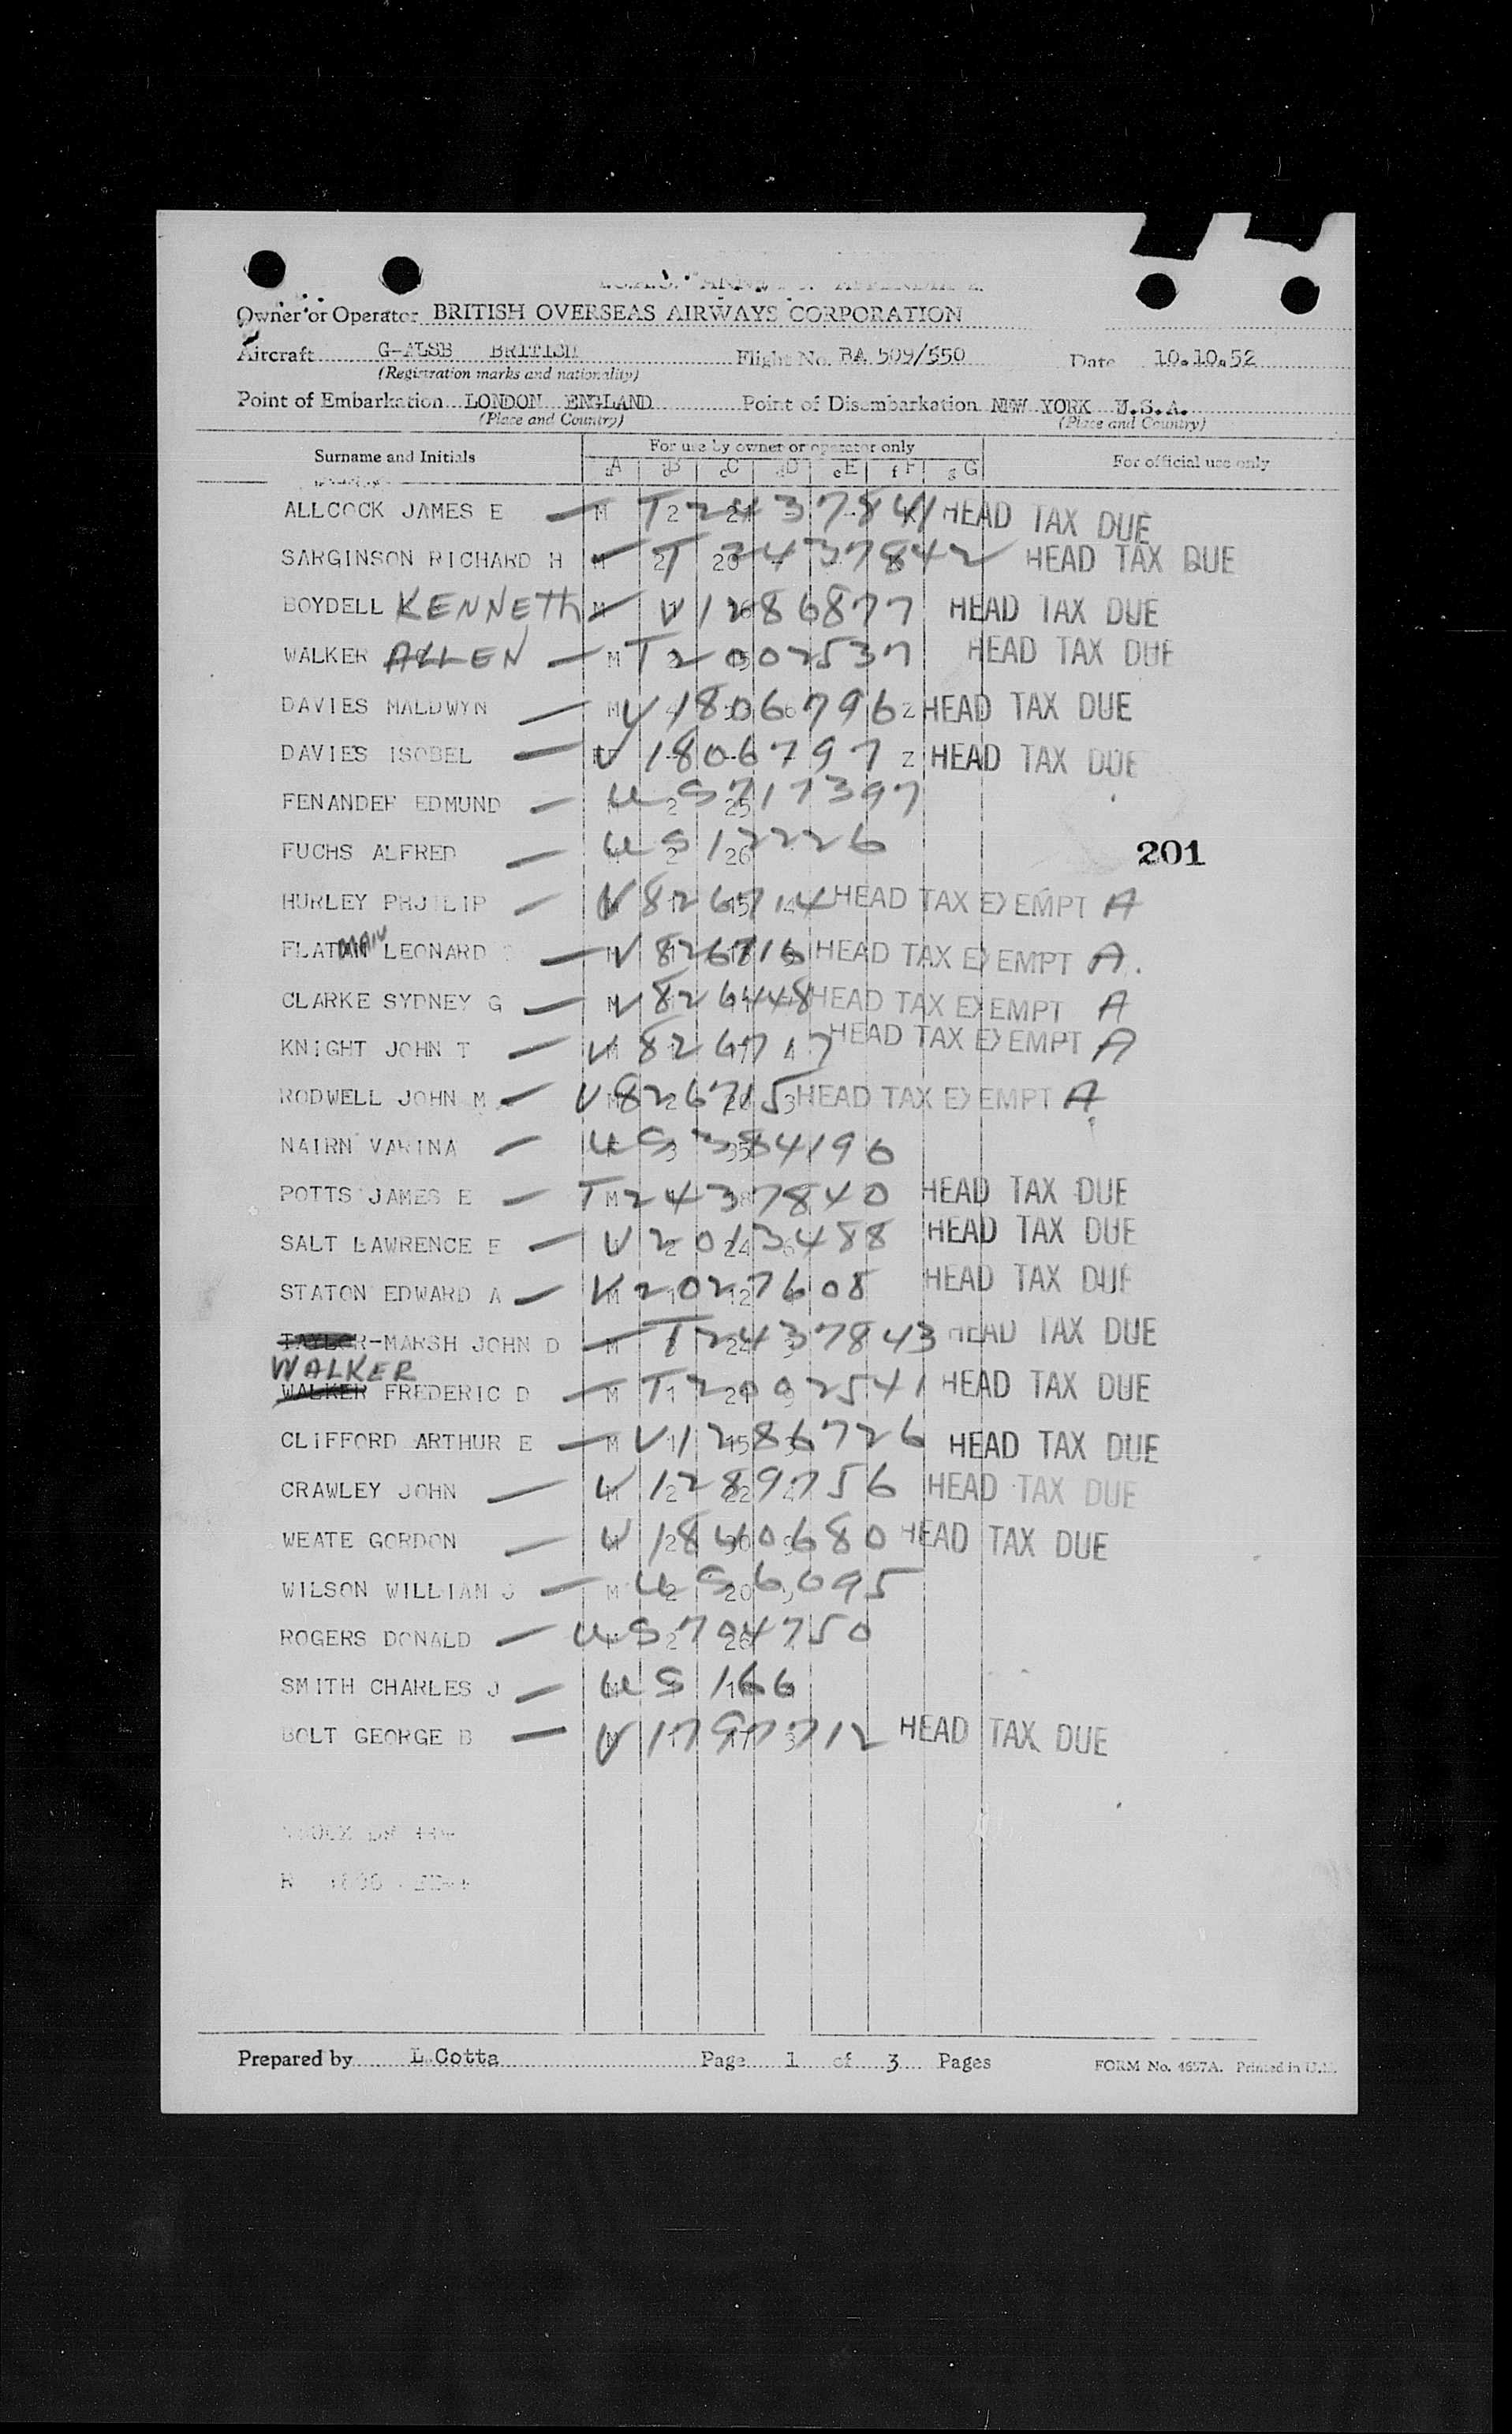 Owner or Operator BRITISH OVERSEAS AIRWAYS CORPORATION
Aircraft G-ALSB BRITISH Flight No. BA 509/550 Date 10.10.52
(Registration marks and nationality)
Point of Embarkation LONDON ENGLAND Point of Disembarkation NEW YORK U.S.A.
(Place and Country) (Place and Country)
Surname and Initials For use by owner or operator only For official use only
A B C D E F G
ALLCOCK JAMES E — M T2437841 HEAD TAX DUE
SARGINSON RICHARD H — M T 2437842 HEAD TAX DUE
BOYDELL KENNETH — M V1286877 HEAD TAX DUE
WALKER ALLEN — M T2002537 HEAD TAX DUE
DAVIES MALDWYN — M V1806796 Z HEAD TAX DUE
DAVIES ISOBEL — V1806797 Z HEAD TAX DUE
FENANDER EDMUND — US717397
FUCHS ALFRED — US12226
201
HURLEY PHILIP — V826714 HEAD TAX EXEMPT A
FLATMAN LEONARD — V826716 HEAD TAX EXEMPT A.
CLARKE SYDNEY G — V826448 HEAD TAX EXEMPT A
KNIGHT JOHN T — V826717 HEAD TAX EXEMPT A
RODWELL JOHN M — V826715 HEAD TAX EXEMPT A
NAIRN VARINA — US384196
POTTS JAMES E — T2437840 HEAD TAX DUE
SALT LAWRENCE E — V2013488 HEAD TAX DUE
STATON EDWARD A — V2027608 HEAD TAX DUE
TAYLOR-MARSH JOHN D — M T2437843 HEAD TAX DUE
WALKER
WALKER FREDERIC D — M T2002541 HEAD TAX DUE
CLIFFORD ARTHUR E — M V1286726 HEAD TAX DUE
CRAWLEY JOHN — V1289756 HEAD TAX DUE
WEATE GORDON — V1840680 HEAD TAX DUE
WILSON WILLIAM J — M US6095
ROGERS DONALD — US704750
SMITH CHARLES J — US166
BOLT GEORGE B — V1797712 HEAD TAX DUE
Prepared by L.Cotta Page 1 of 3 Pages FORM No. 4657A. Printed in U.K.